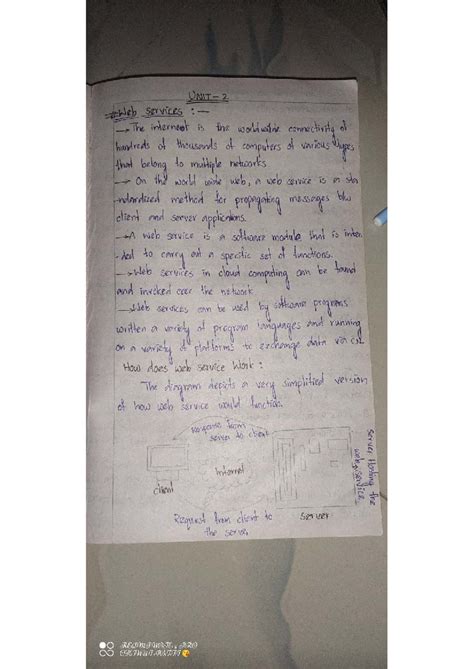 UNIT-2
Web services :-
→ The internet is the worldwide connectivity of
hundreds of thousands of computers of various types
that belong to multiple networks.
→ On the world wide web, a web service is a sta
-ndardized method for propagating messages b/w
client and server applications.
→ A web service is a software module that is inten
-ded to carry out a specific set of functions.
→ Web services in cloud computing can be found
and invoked over the network
→ Web services can be used by software programs
written a variety of program languages and running
on a variety of platforms to exchange data via
How does web service Work :
The diagram depicts a very simplified version
of how web service would function.
Response from
server to client
Internet
client
Server Hosting the
web service
Request from client to
the server
Server